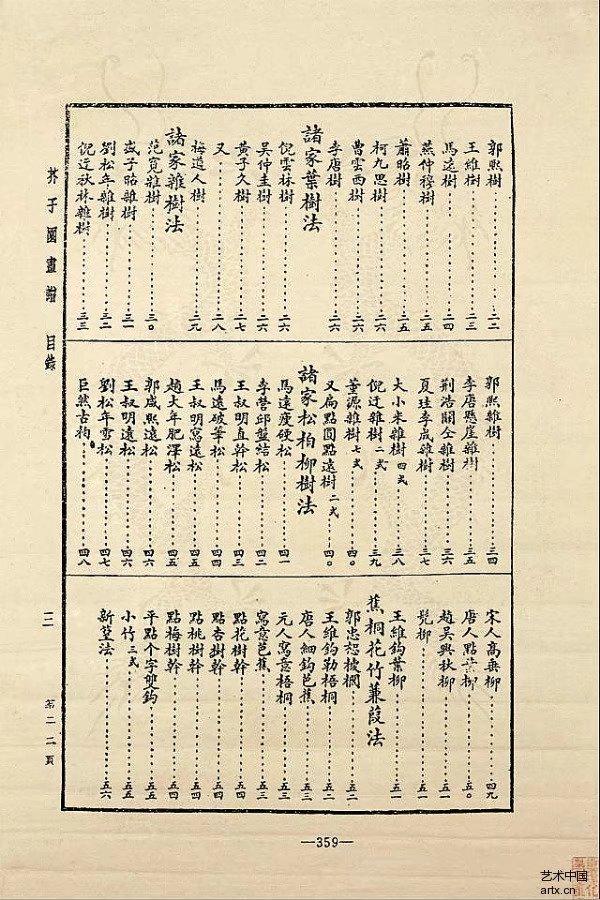 郭熙樹……二二
王維樹……二三
馬遠樹……二四
燕仲穆樹……二五
蕭照樹……二五
柯九思樹……二六
曹雲西樹……二六
李唐樹……二六
諸家葉樹法
倪雲林樹……二六
吳仲圭樹……二六
黃子久樹……二七
又……二八
梅道人樹……二九
諸家雜樹法
范寬雜樹……三〇
盛子昭雜樹……三一
劉松年雜樹……三二
倪迂秋林雜樹……三三
郭熙雜樹……三四
李唐懸崖雜樹……三五
荊浩關仝雜樹……三六
夏珪李成雜樹……三七
大小米雜樹 四式……三八
倪迂雜樹 二式……三九
董源雜樹 七式……四〇
又扁點圓點遠樹 二式……四〇
諸家松柏柳樹法
馬遠瘦硬松……四一
李營邱盤結松……四二
王叔明直幹松……四三
馬遠破筆松……四四
王叔明寫遠松……四五
趙大年肥澤松……四五
郭咸熙遠松……四六
王叔明遠松……四六
劉松年雪松……四七
巨然古柏……四八
宋人高垂柳……四九
唐人點葉柳……五〇
趙吳興秋柳……五一
髡柳……五一
王維鈎葉柳……五一
蕉桐花竹蒹葭法
郭忠恕椶櫚……五二
王維鈎勒梧桐……五二
唐人細鈎芭蕉……五二
元人寫意梧桐……五三
寫意芭蕉……五三
點花樹幹……五四
點杏樹幹……五四
點桃樹幹……五四
點梅樹幹……五四
平點个字雙鈎……五五
小竹 三式……五五
新篁法……五六
芥子園畫譜 目錄
三
第二二頁
—359—
艺术中国
artx.cn